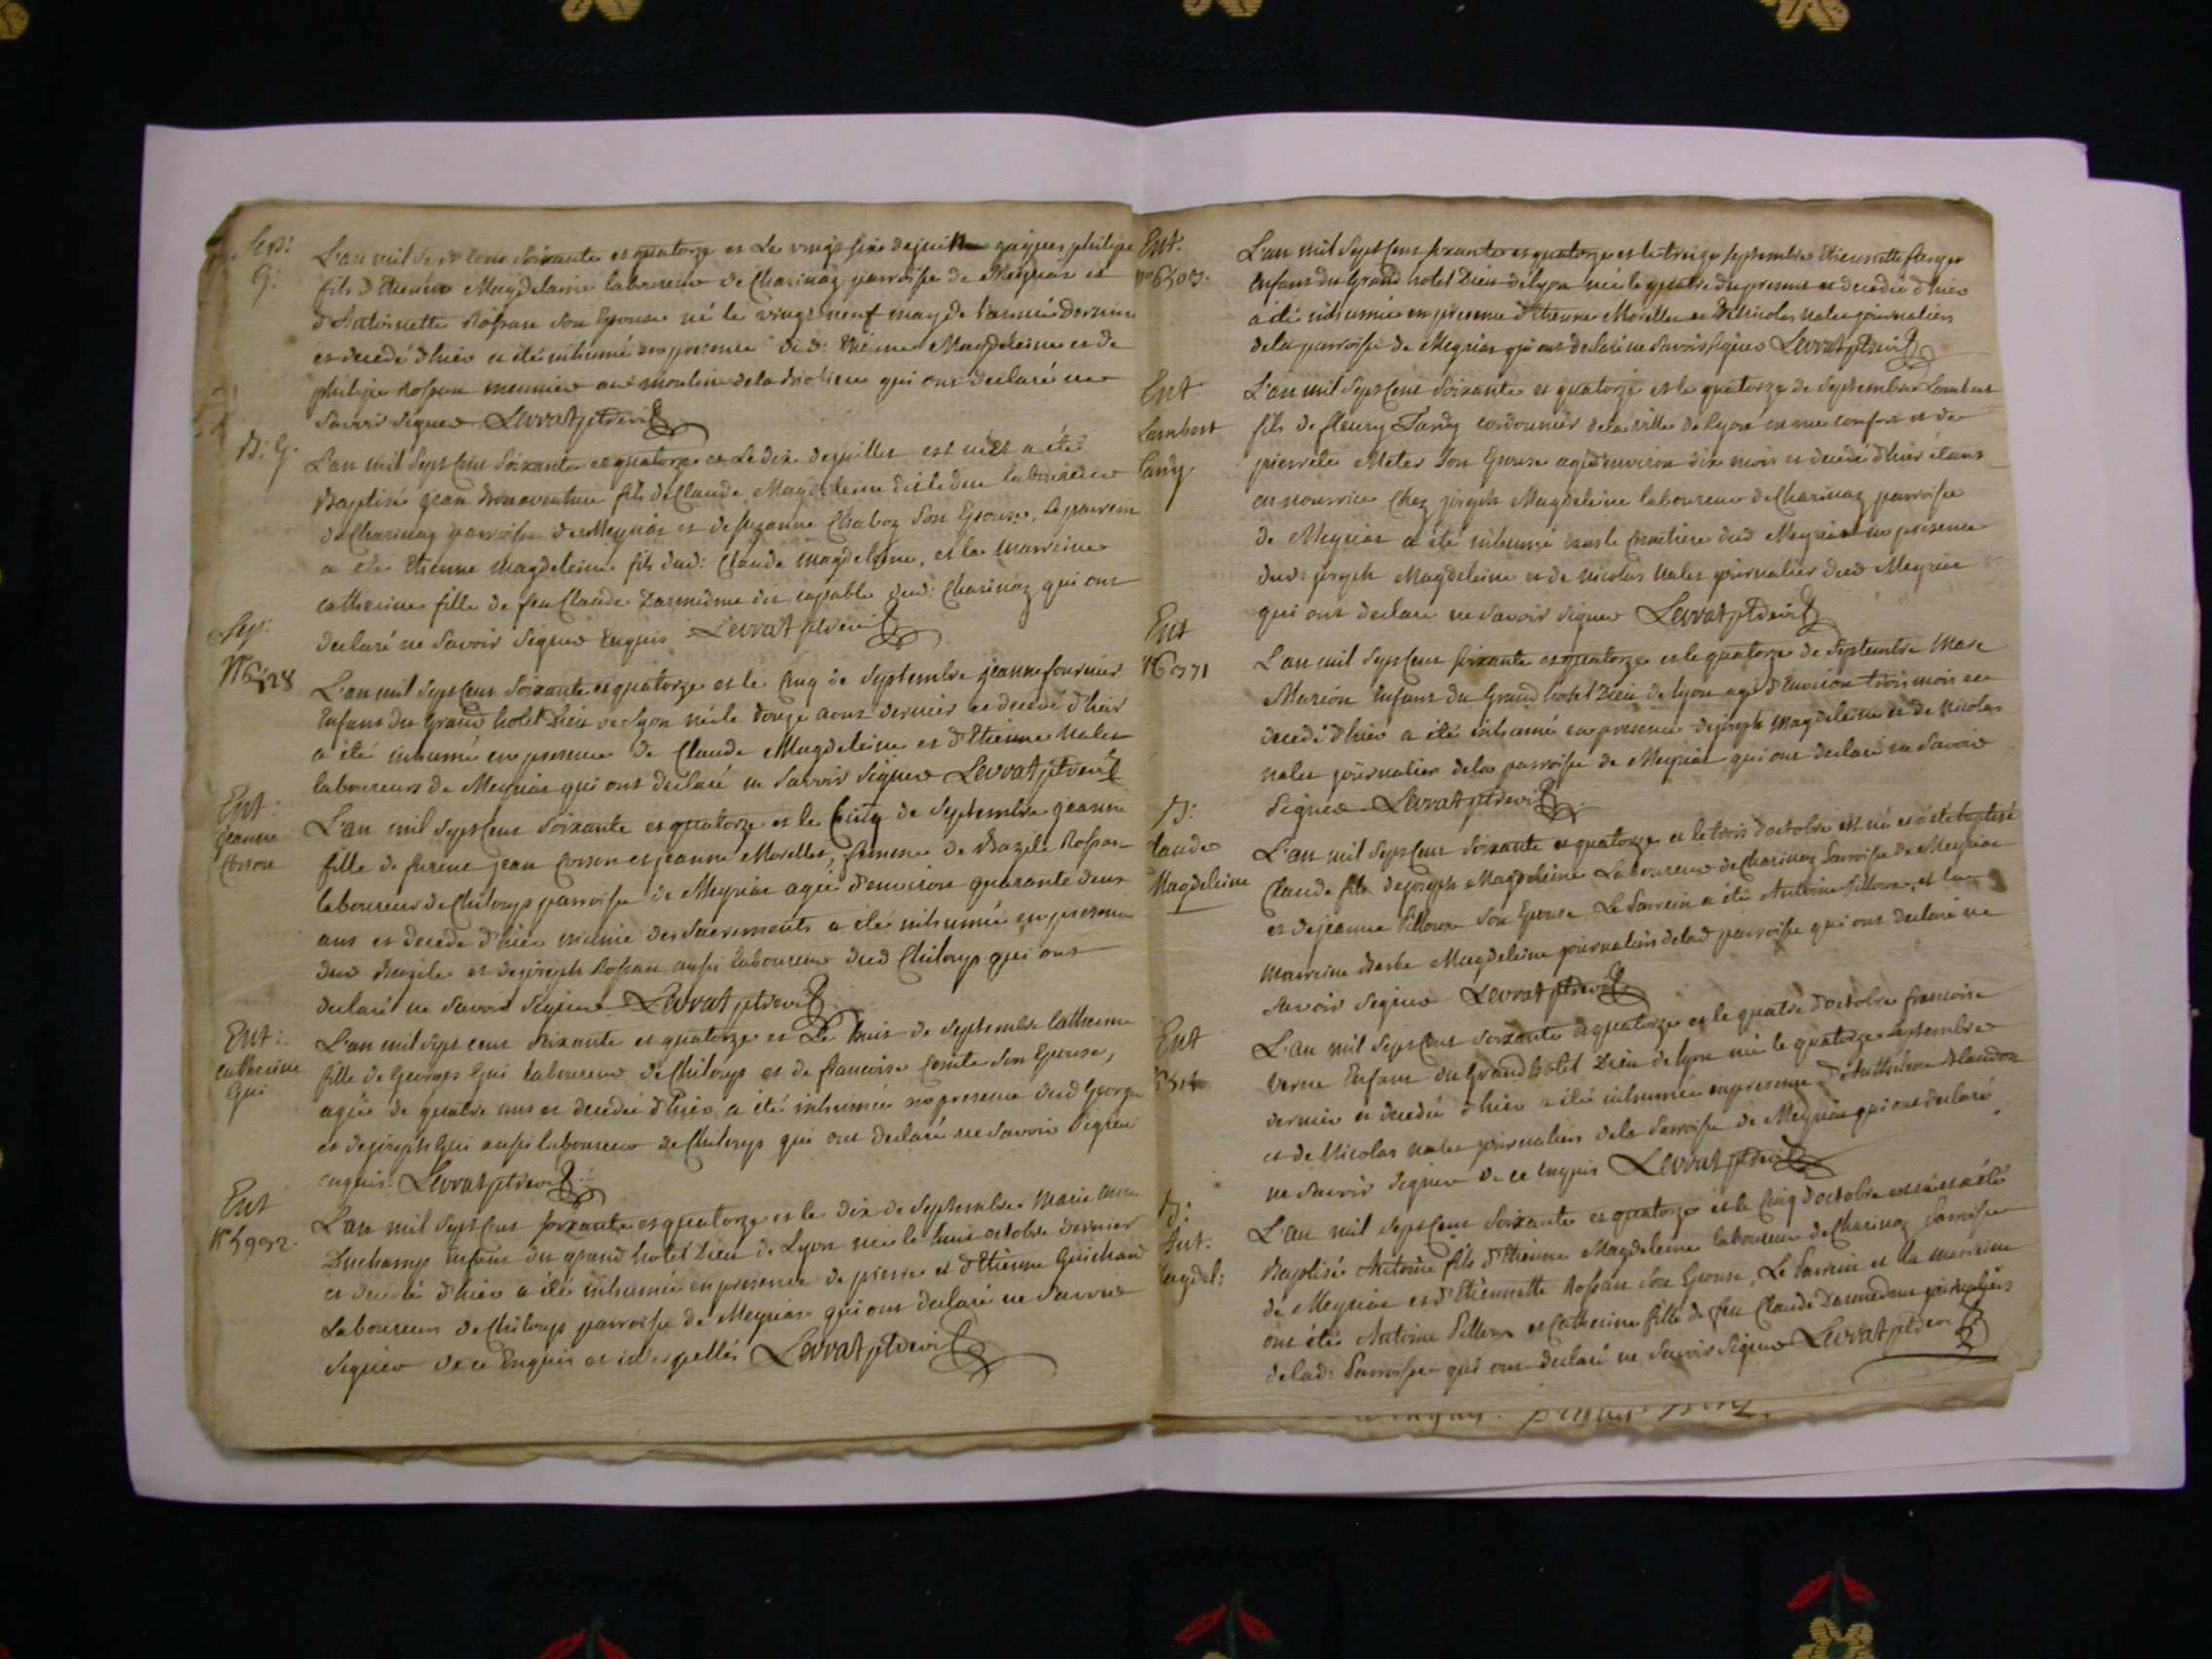 Sep:
G:
L'an mil sept cens soixante et quatorze et le vingt six de juillet jaques philipe
fils d'Etienne Magdelaine laboureur de Charinaz parroisse de Meyriat et
d'Antoinette Rossan son Epouse né le vingt neuf may de l'année derniere
et decedé d'hier a été inhumé en presence dud: Etienne Magdeleine et de
philipe Rossan meunier au moulin de la qui ont declaré ne
savoir signer Levrat ptre vi
B: G.
L'an mil sept Cens soixante et quatorze et Le dix de juillet est né et a été
Baptisé jean Bonaventure fils de Claude Magdeleine dit le duc laboureur
de Charinaz parroisse de Meyriat et de suzanne Chaboz son Epouse, le parrein
a été Etienne magdeleine fils dud: Claude magdeleine, et la marreine
catherine fille de feu Claude dit capable dud: Charinaz qui ont
declaré ne savoir signer Enquis Levrat ptre vi
Sep:
N° 6328
L'an mil sept Cens soixante et quatorze et le Cinq de septembre jeanne fournier
Enfant du Grand hotel Dieu de Lyon née le douze aout dernier et decedé d'hier
a été inhumé en presence de Claude Magdeleine et d'Etienne Nalet
laboureurs de Meyriat qui ont declaré ne savoir signer Levrat ptre vi
Ent:
jeanne
Cosson
L'an mil sept Cens soixante et quatorze et le Cinq de septembre jeanne
fille de furent jean Cosson et jeanne Morellet, femme de Bazile Rossan
laboureur de Chiloup parroisse de Meyriat agée d'environ quarante deux
ans et decede d'hier munie des sacrements a été inhumée en presence
dud Bazile et de joseph Rossan aussi laboureur dud Chiloup qui ont
declaré ne savoir signer Levrat ptre vi
Ent:
catherine
Gui
L'an mil sept cens soixante et quatorze et Le huit de septembre Catherine
fille de Georges Gui laboureur de Chiloup et de francoise Comte son Epouse,
agée de quatre ans et decedée d'hier a été inhumée en presence dud George
et de joseph Gui aussi laboureur de Chiloup qui ont declaré ne savoir signer
enquis Levrat ptre vi
Ent
N° 5992
L'an mil sept Cens soixante et quatorze et le dix de septembre Marie Anne
Duchamp Enfant du grand hotel Dieu de Lyon née le huit octobre dernier
et decedée d'hier a été inhumée en presence de pierre et d'Etienne Guichard
Laboureurs de Chiloup parroisse de Meyriat qui ont declaré ne savoir
signer de ce Enquis et Levrat ptre vi
Ent.
n° 6505.
L'an mil sept Cens soixante et quatorze et le treize septembre Etiennette
Enfant du Grand hotel Dieu de Lyon née le quatre du present et decedée d'hier
a été inhumée en presence d'Etienne Morellet et de Nicolas nalet journaliers
de la parroisse de Meyriat qui ont declaré ne savoir signer Levrat ptre vi
Ent
Lambert
Tardy
L'an mil sept Cens soixante et quatorze et le quatorze de septembre Lambert
fils de fleury Tardy cordonnier de la ville de Lyon et de
pierrete Meter son Epouse agé d'environ dix mois et decedé d'hier étant
en nourrice Chez joseph Magdeleine laboureur de Charinaz parroisse
de Meyriat a été inhumé dans le Cemetiere dud Meyriat en presence
dud: joseph Magdeleine et de nicolas nalet journalier dud Meyriat
qui ont declaré ne savoir signer Levrat ptre vi
Ent
N° 6371
L'an mil sept Cens soixante et quatorze et le quatorze de septembre Marc
Marion Enfant du Grand hotel Dieu de Lyon agé d'Environ trois mois et
decedé d'hier a été inhumé en presence de joseph magdeleine et de nicolas
nalet journalier de la parroisse de Meyriat qui ont declaré ne savoir
signer Levrat ptre vi
B:
laude
Magdeleine
L'an mil sept Cens soixante et quatorze et le trois d'octobre est né et a été baptisé
Claude fils de joseph Magdeleine Laboureur de Charinaz Parroisse de Meyriat
et de jeanne Pilloux son Epouse Le Parrein a été Antoine Pilloux, et la
marreine Barbe Magdeleine journaliers de lad parroisse qui ont declaré ne
savoir signer Levrat ptre vi
Ent
L'an mil sept Cens soixante et quatorze et le quatre d'octobre francoise
verne Enfant du Grand hotel Dieu de Lyon née le quatorze septembre
dernier et decedée d'hier a été inhumée en presence d'Anthelme Blandon
et de Nicolas nalet journaliers de la Parroisse de Meyriat qui ont declaré
ne savoir signer de ce enquis Levrat ptre vi
B:
Ant.
agdel:
L'an mil sept Cens soixante et quatorze et le Cinq d'octobre est né et a été
Baptisé Antoine fils d'Etienne Magdeleine laboureur de Charinaz Parroisse
de Meyriat et d'Etiennette Rossan son Epouse, Le Parrein et la marreine
ont été Antoine Pilloux et Catherine fille de feu Claude journaliers
de lad: Parroisse qui ont declaré ne savoir signer Levrat ptre vi